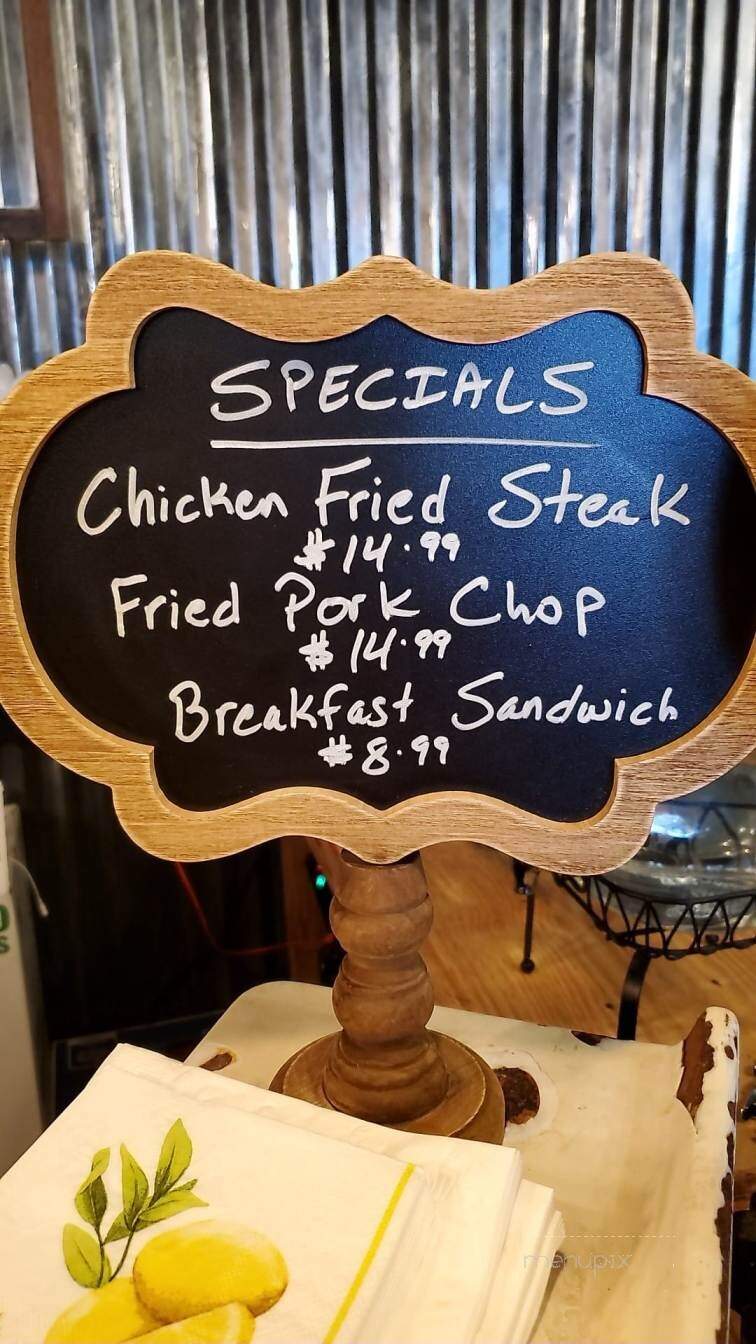 SPECIALS
Chicken Fried Steak
$14.99
Fried Pork Chop
$14.99
Breakfast Sandwich
$8.99
menupix